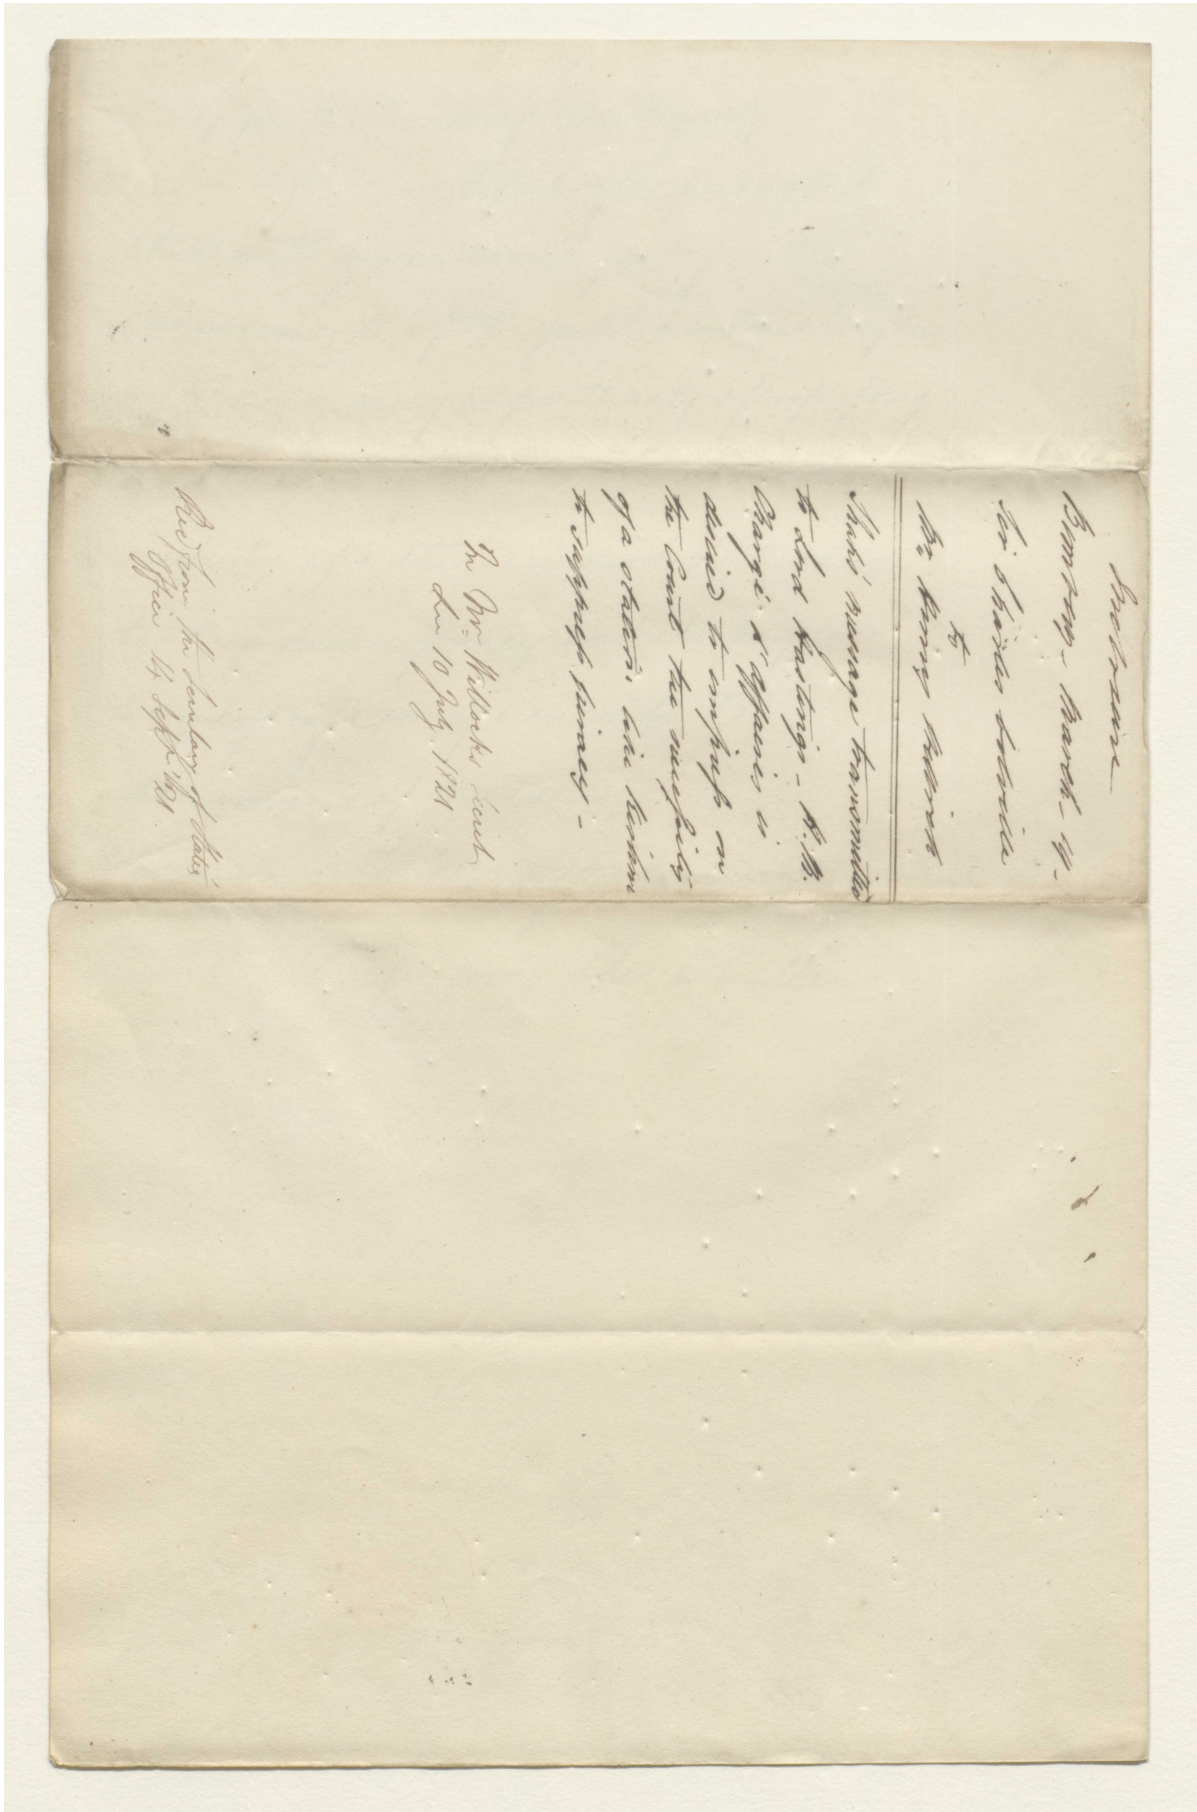 Inclosure
Bombay - March - 4 -
Sir Charles Colville
to
Mr. Henry Willock
Shah's message transmitted
to Lord Hastings - H. M.
Chargé d'affaires is
desired to impress on
the Court the necessity
of a station like Kishm
to suppress piracy -
In Mr. Willock's Secret
Lre 10 July 1821.
Recd from the Secretary of State's
Office 14 Sept. 1821.